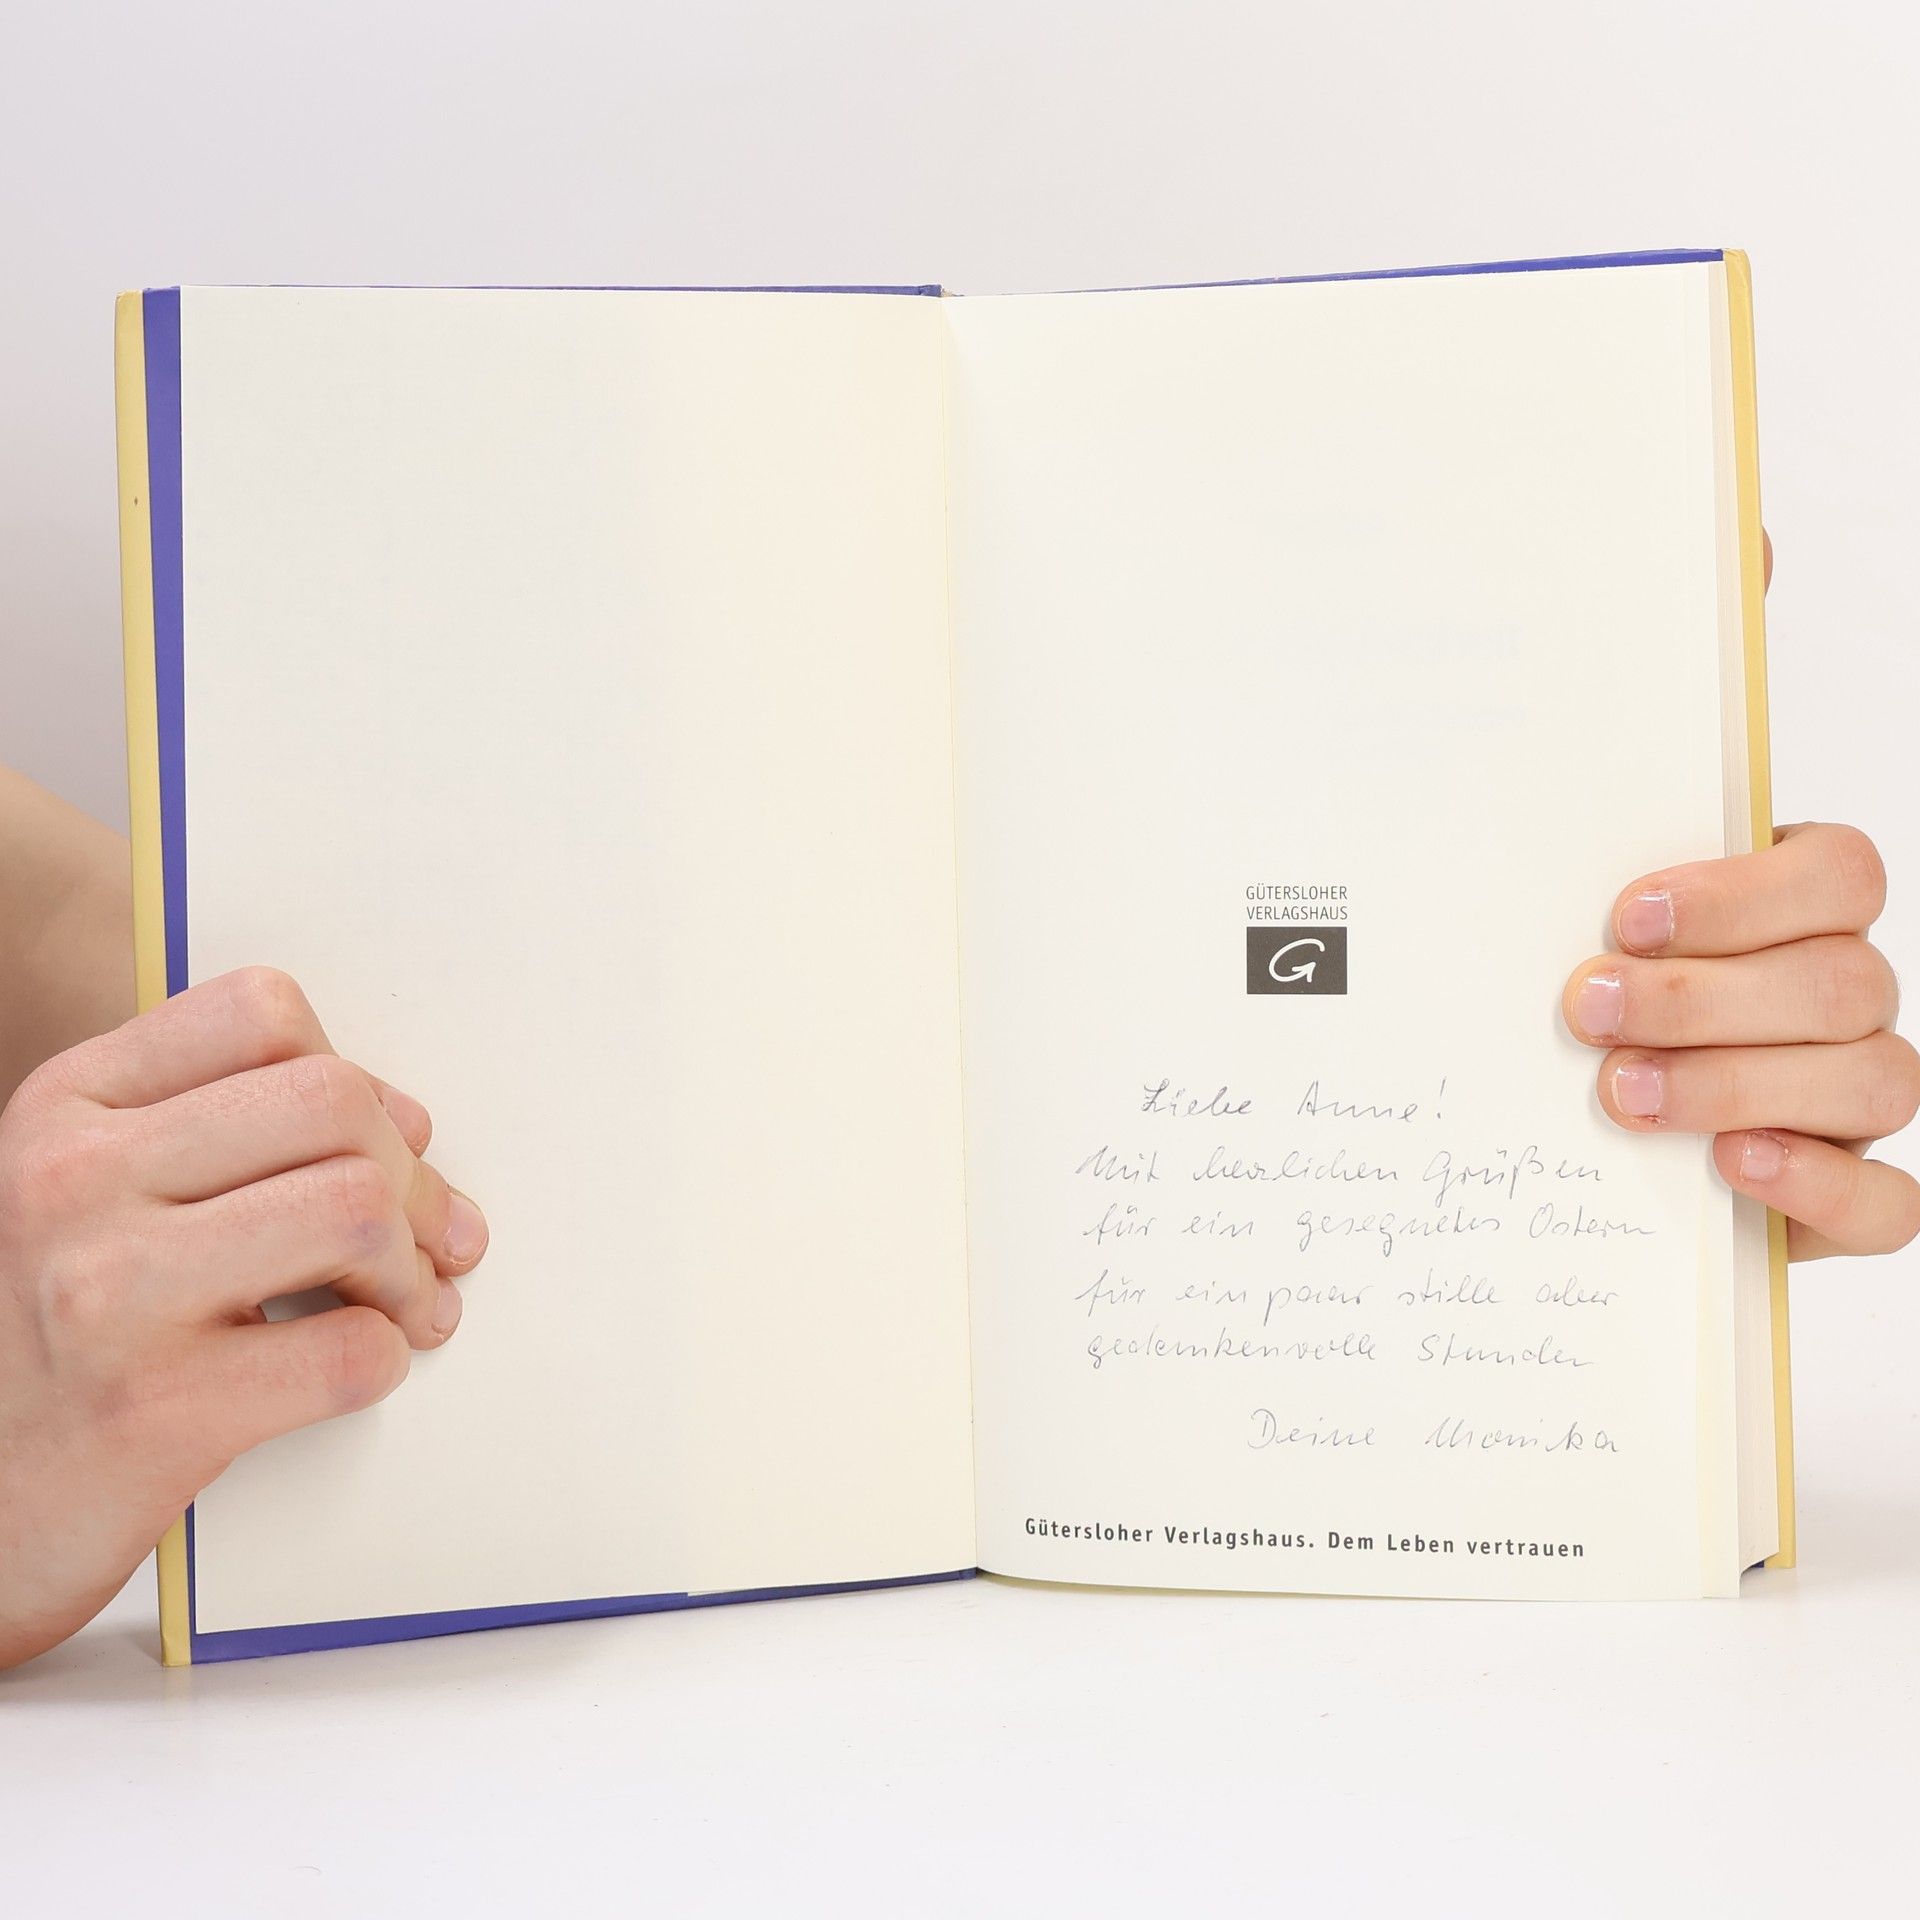 GÜTERSLOHER
VERLAGSHAUS
G
Liebe Anne!
Mit herzlichen Grüßen
für ein gesegnetes Ostern
für ein paar stille aber
gedankenvolle Stunden
Deine Monika
Gütersloher Verlagshaus. Dem Leben vertrauen